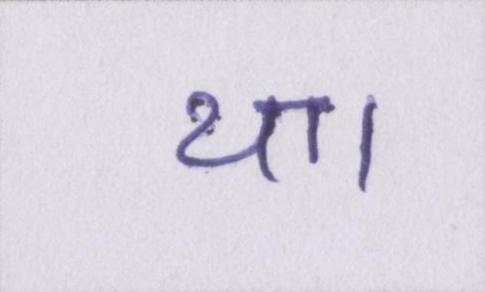 था।